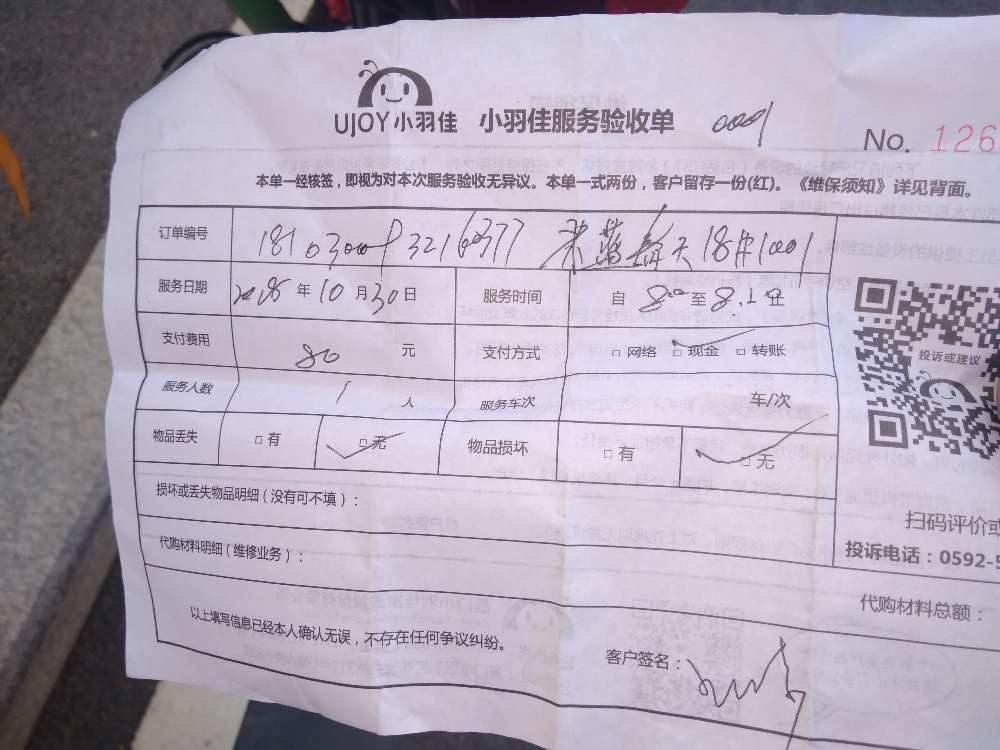 UJOY小羽佳 小羽佳服务验收单 0001
No. 126
本单一经核签，即视为对本次服务验收无异议。本单一式两份，客户留存一份(红)。《维保须知》详见背面。
订单编号 18#1001
服务日期 年 10 月 30 日 服务时间 自 8:00 至 8.10
支付费用 80 元 支付方式 □ 网络 □ 现金 □ 转账
服务人数 1 人 服务车次 车/次
物品丢失 □ 有 □ 无 物品损坏 □ 有 □ 无
投诉或建议
损坏或丢失物品明细（没有可不填）：
扫码评价或
代购材料明细（维修业务）：
投诉电话：0592-5
代购材料总额：
以上填写信息已经本人确认无误，不存在任何争议纠纷。
客户签名：